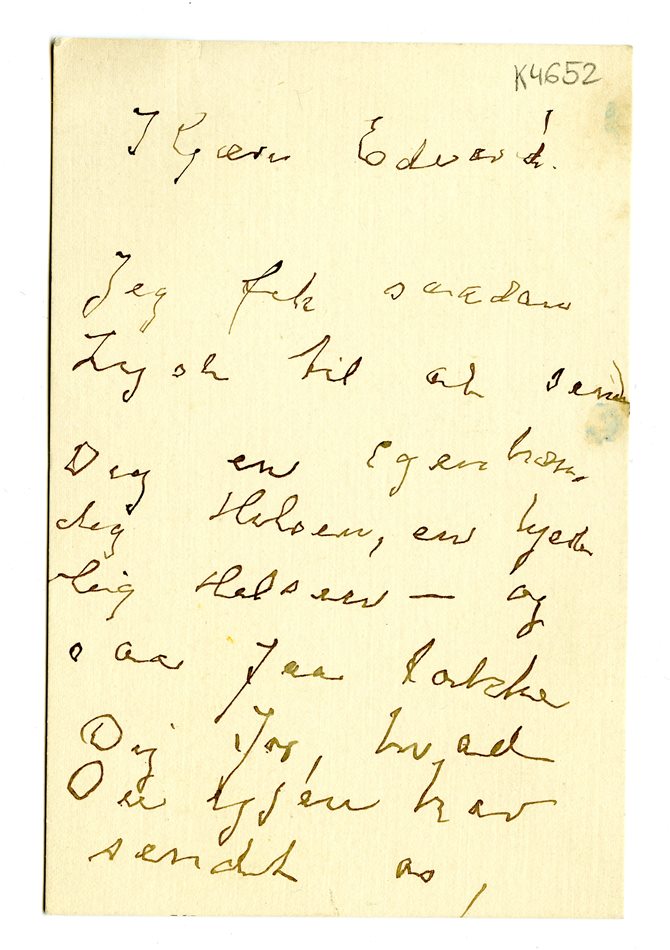 K4652
Kjære Edvard.
Jeg fik saadan
Lyst til at sende
Dig en egenhæn
dig Hilsen, en hjerte
lig Hilsen — og
saa faa takke
Dig for, hvad
Du igjen har
sendt os,